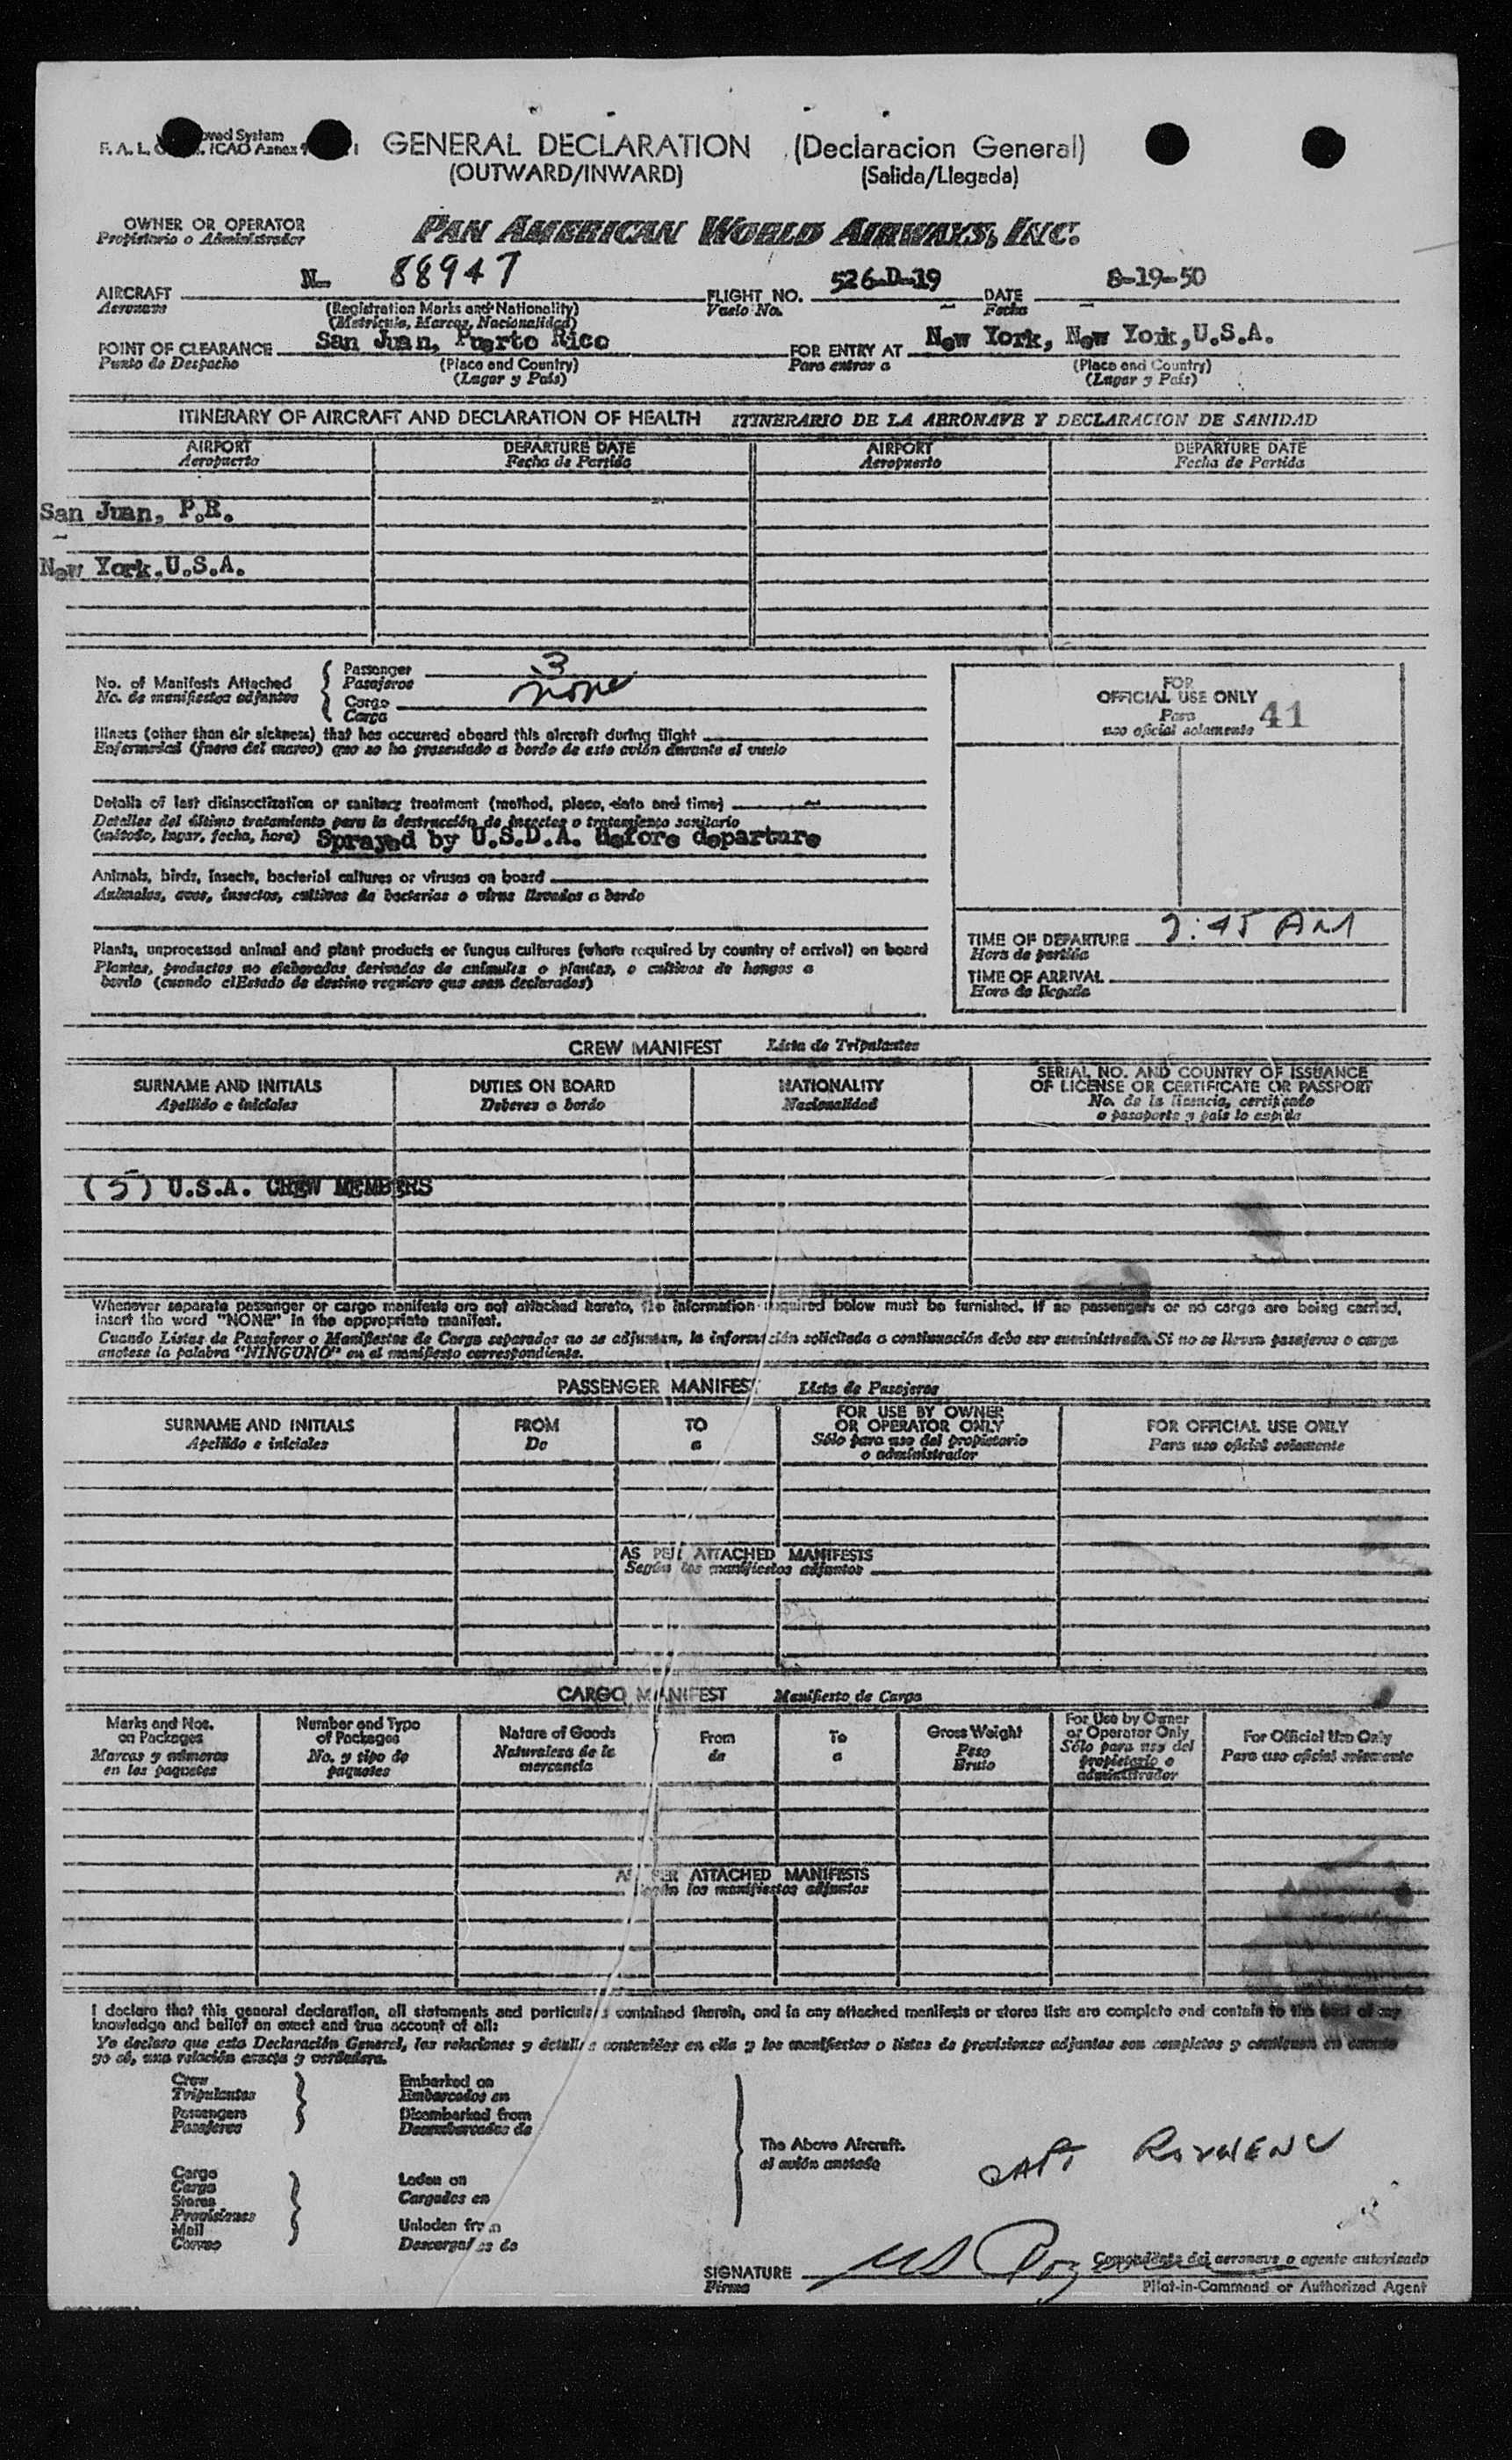 GENERAL DECLARATION (Declaracion General)
(OUTWARD/INWARD) (Salida/Llegada)
OWNER OR OPERATOR PAN AMERICAN WORLD AIRWAYS, INC.
Propietario o Administrador
AIRCRAFT N- 88947 FLIGHT NO. 526-D-19 DATE 8-19-50
Aeronave (Registration Marks and Nationality) Vuelo No. Fecha
(Matricula, Marcas, Nacionalidad)
POINT OF CLEARANCE San Juan, Puerto Rico FOR ENTRY AT New York, New York, U.S.A.
Punto de Despacho (Place and Country) Para entrar a (Place and Country)
(Lugar y País) (Lugar y País)
ITINERARY OF AIRCRAFT AND DECLARATION OF HEALTH ITINERARIO DE LA AERONAVE Y DECLARACION DE SANIDAD
AIRPORT DEPARTURE DATE AIRPORT DEPARTURE DATE
Aeropuerto Fecha de Partida Aeropuerto Fecha de Partida
San Juan, P.R.
New York.U.S.A.
No. of Manifests Attached Passenger 3
No. de manifiestos adjuntos Pasajeros
Cargo none
Carga
FOR
OFFICIAL USE ONLY
Para
uso oficial solamente 41
Illness (other than air sickness) that has occurred aboard this aircraft during flight
Enfermedad (fuera del mareo) que se ha presentado a bordo de este avión durante el vuelo
Details of last disinsectization or sanitary treatment (method, place, date and time)
Detalles del último tratamiento para la destrucción de insectos o tratamiento sanitario
(método, lugar, fecha, hora) Sprayed by U.S.D.A. before departure
Animals, birds, insects, bacterial cultures or viruses on board
Animales, aves, insectos, cultivos de bacterias o virus llevados a bordo
Plants, unprocessed animal and plant products or fungus cultures (where required by country of arrival) on board
Plantas, productos no elaborados derivados de animales o plantas, o cultivos de hongos a
bordo (cuando el Estado de destino requiere que sean declarados)
TIME OF DEPARTURE 2:45 AM
Hora de partida
TIME OF ARRIVAL
Hora de llegada
CREW MANIFEST Lista de Tripulantes
SURNAME AND INITIALS DUTIES ON BOARD NATIONALITY SERIAL NO. AND COUNTRY OF ISSUANCE
OF LICENSE OR CERTIFICATE OR PASSPORT
Apellido e iniciales Deberes a bordo Nacionalidad No. de la licencia, certificado
o pasaporte y país lo expida
(5) U.S.A. CREW MEMBERS
Whenever separate passenger or cargo manifests are not attached hereto, the information required below must be furnished. If no passengers or no cargo are being carried,
insert the word "NONE" in the appropriate manifest.
Cuando Listas de Pasajeros o Manifiestos de Carga separados no se adjuntan, la información solicitada a continuación debe ser suministrada. Si no se llevan pasajeros o carga
anotese la palabra "NINGUNO" en el manifiesto correspondiente.
PASSENGER MANIFEST Lista de Pasajeros
SURNAME AND INITIALS FROM TO FOR USE BY OWNER
OR OPERATOR ONLY FOR OFFICIAL USE ONLY
Apellido e iniciales De a Sólo para uso del propietario
o administrador Para uso oficial solamente
AS PER ATTACHED MANIFESTS
Según los manifiestos adjuntos
CARGO MANIFEST Manifiesto de Carga
Marks and Nos.
on Packages
Marcas y números
en los paquetes
Number and Type
of Packages
No. y tipo de
paquetes
Nature of Goods
Naturaleza de la
mercancía
From
de
To
a
Gross Weight
Peso
Bruto
For Use by Owner
or Operator Only
Sólo para uso del
propietario o
administrador
For Official Use Only
Para uso oficial solamente
AS PER ATTACHED MANIFESTS
Según los manifiestos adjuntos
I declare that this general declaration, all statements and particulars contained therein, and in any attached manifests or stores lists are complete and contain to the best of my
knowledge and belief an exact and true account of all:
Yo declaro que esta Declaración General, las relaciones y detalles contenidos en ella y los manifiestos o listas de provisiones adjuntos son completos y contienen en cuanto
yo sé, una relación exacta y verdadera.
Crew Embarked on
Tripulantes Embarcados en
Passengers Disembarked from
Pasajeros Desembarcados de
The Above Aircraft.
el avión anotado
Cargo Laden on
Carga Cargados en
Stores
Provisiones
Mail Unladen from
Correo Descargados de
CAPT
SIGNATURE
Firma
Comandante del aeronave o agente autorizado
Pilot-in-Command or Authorized Agent